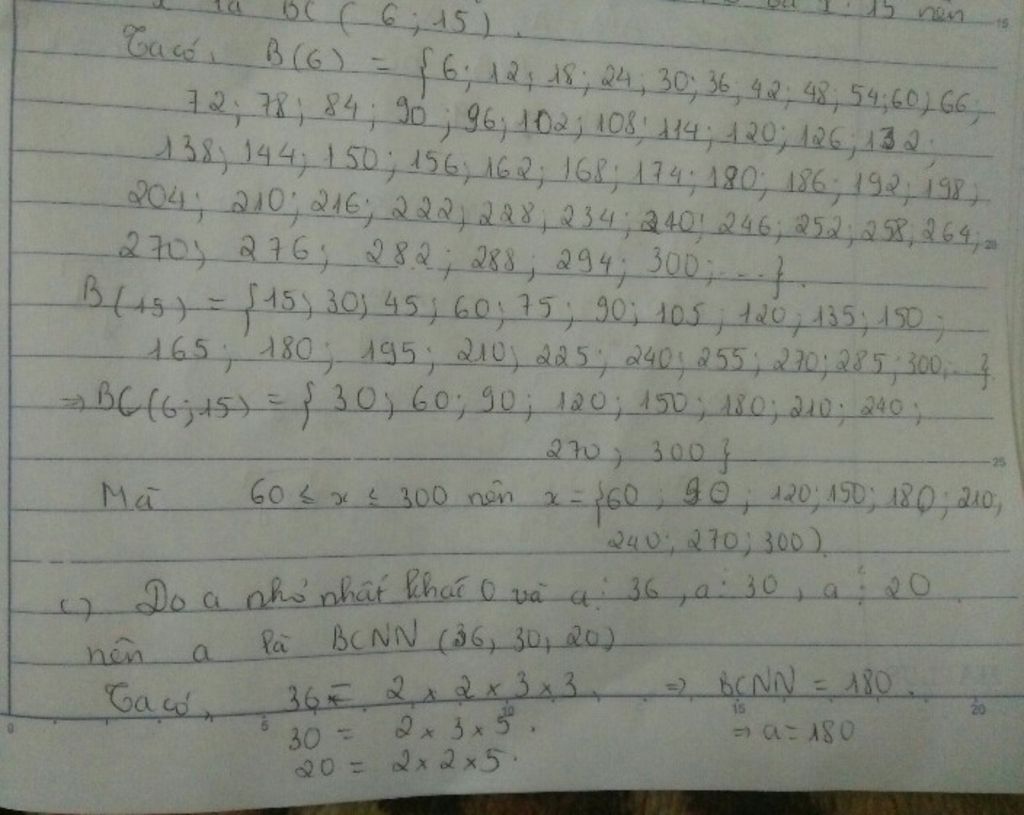 là BC ( 6 ; 15 ) .
15 nên
Ta có, B(6) = { 6; 12; 18; 24; 30; 36; 42; 48; 54; 60; 66;
72; 78; 84; 90; 96; 102; 108; 114; 120; 126; 132;
138; 144; 150; 156; 162; 168; 174; 180; 186; 192; 198;
204; 210; 216; 222; 228; 234; 240; 246; 252; 258; 264;
270; 276; 282; 288; 294; 300; ... }.
B(15) = { 15; 30; 45; 60; 75; 90; 105; 120; 135; 150;
165; 180; 195; 210; 225; 240; 255; 270; 285; 300; ... }
⇒ BC(6;15) = { 30; 60; 90; 120; 150; 180; 210; 240;
270; 300 }
Mà 60 ≤ x ≤ 300 nên x = {60; 90; 120; 150; 180; 210;
240; 270; 300}.
c) Do a nhỏ nhất khác 0 và a ⋮ 36, a ⋮ 30, a ⋮ 20
nên a là BCNN (36, 30, 20)
Ta có, 36 = 2 × 2 × 3 × 3. ⇒ BCNN = 180.
30 = 2 × 3 × 5. ⇒ a = 180
20 = 2 × 2 × 5.
0 5 10 15 20
15
20
25